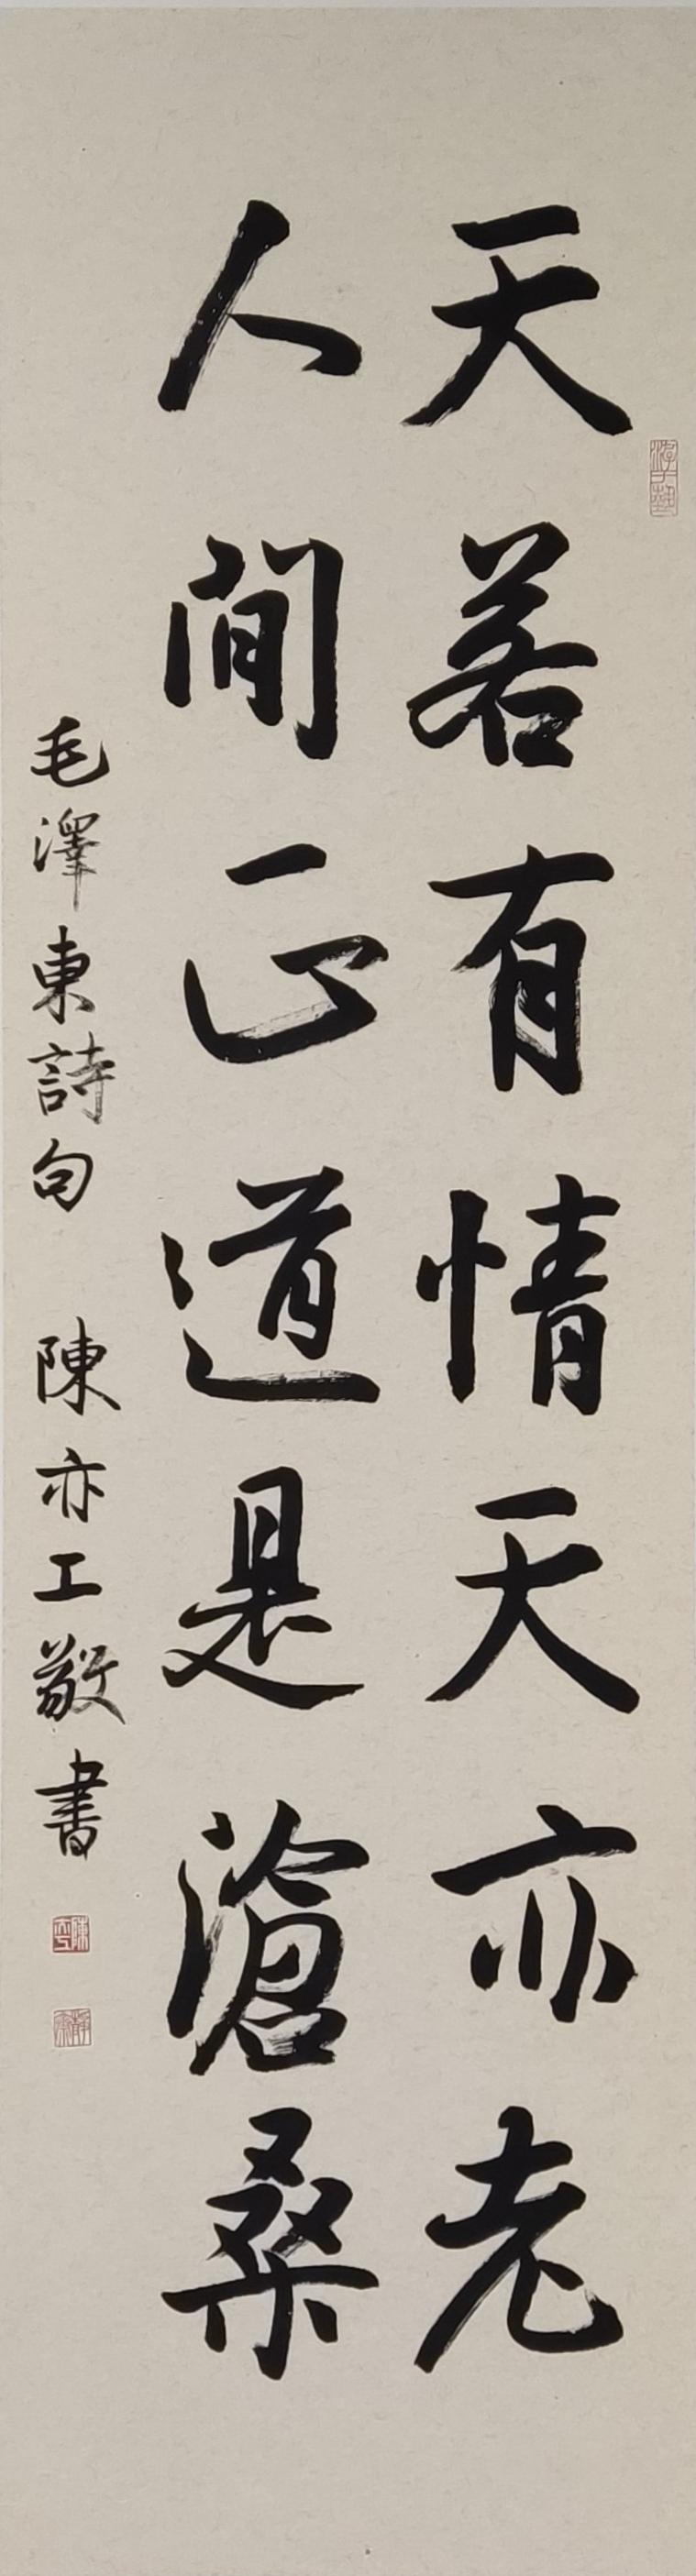 天若有情天亦老
人間正道是滄桑
毛澤東詩句 陳亦工敬書